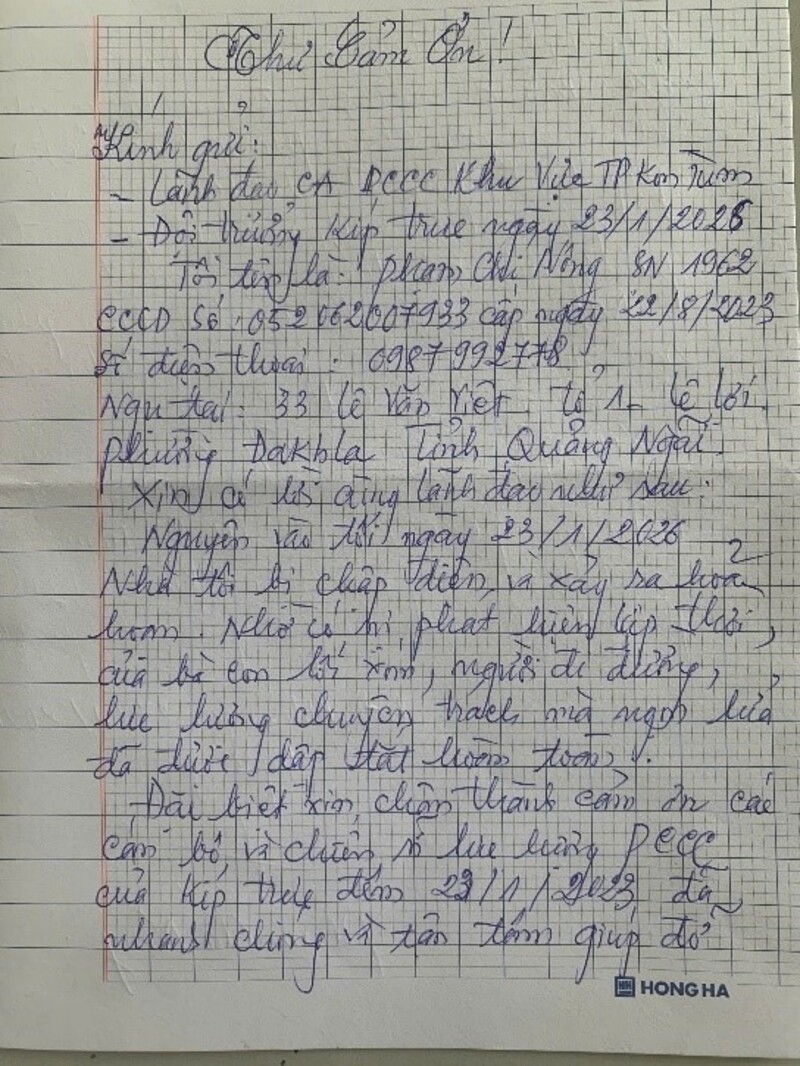 Thư Cảm Ơn!
Kính gửi:
- Lãnh đạo CA PCCC Khu Vực TP Kon Tum
- Đội trưởng Kíp trực ngày 23/1/2026
Tôi tên là: Phạm Chí Nông SN 1962
CCCD Số: 052062007933 cấp ngày 22/8/2023
Số điện thoại: 0987992778
Ngụ tại: 33 Lê Văn Việt tổ 1 Lê lợi.
phường Đakbla Tỉnh Quảng Ngãi.
Xin có lời cùng lãnh đạo như sau:
Nguyên vào tối ngày 23/1/2026
Nhà tôi bị chập điện, và xảy ra hoả
hoạn. Nhờ có sự phát hiện kịp thời,
của bà con lối xóm, người đi đường,
lực lượng chuyên trách mà ngọn lửa
đã được dập tắt hoàn toàn.
Đặc biệt xin chân thành cảm ơn các
cán bộ và chiến sĩ lực lượng PCCC
của Kíp trực đêm 23/1/2023 đã
nhanh chóng và tận tâm giúp đỡ
HONG HA